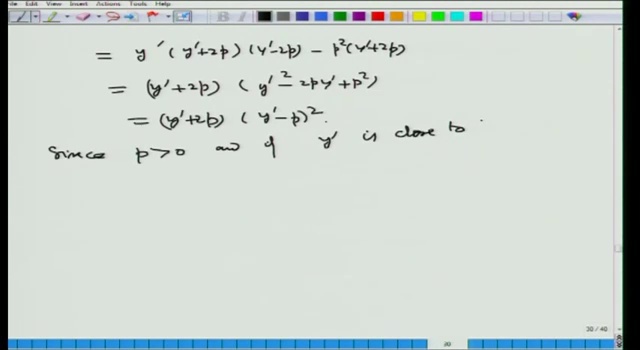 File Edit View Insert Actions Tools Help
= y' (y'+2p) (y'-2p) - p²(y'+2p)
= (y'+2p) (y'² - 2py' + p²)
= (y'+2p) (y'-p)².
Since p>0 and if y' is close to
30 / 40
30